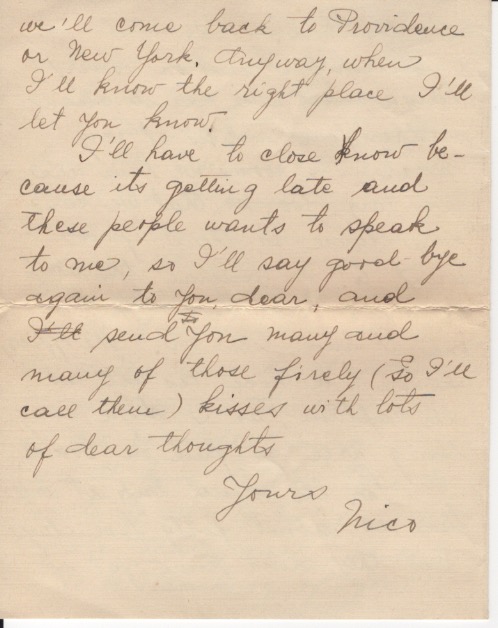 we'll come back to Providence
or New York. Anyway, when
I'll know the right place I'll
let you know.
I'll have to close know be-
cause its getting late and
these people wants to speak
to me, so I'll say good-bye
again to you, dear, and
I'll send to you many and
many of those firely (so I'll
call them) kisses with lots
of dear thoughts
Yours
Nico